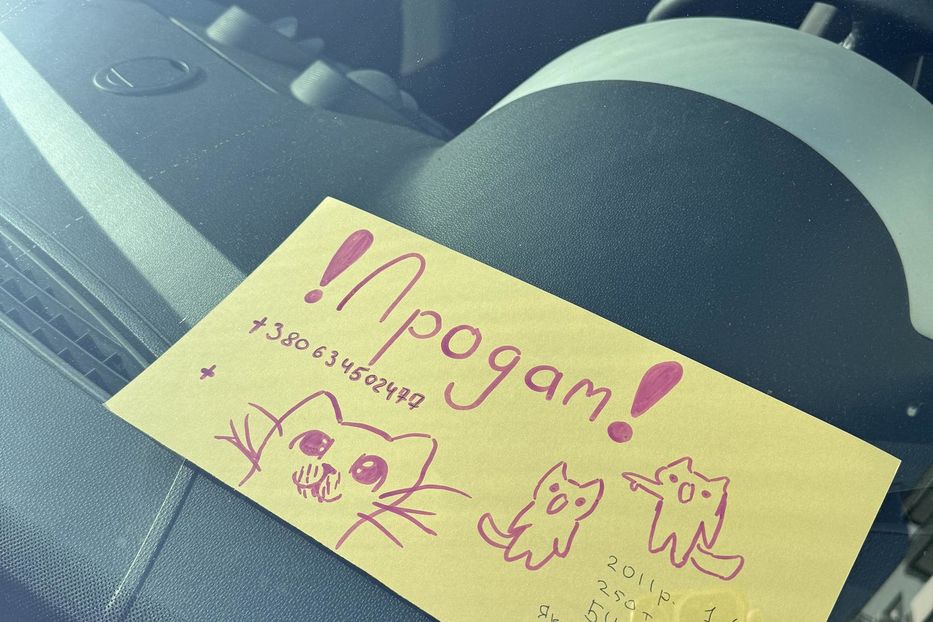 ! Продам !
+380634502477
+
2011р.
250